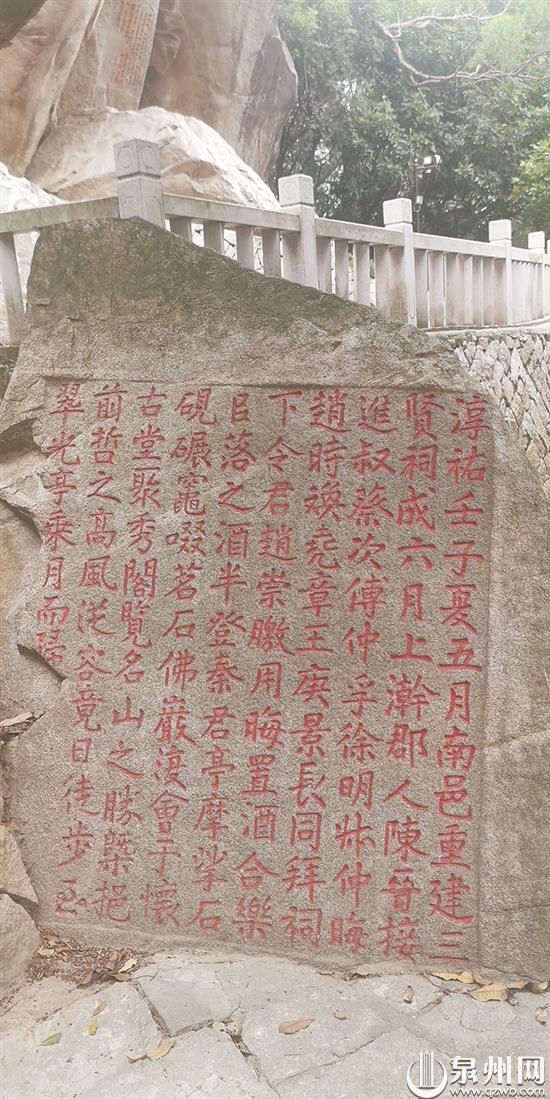 淳祐壬子夏五月南邑重建三
賢祠成六月上澣郡人陳晉接
進叔蔡次傅仲孚徐明叔仲晦
趙時煥堯章王庚景長同拜祠
下令君趙崇用晦置酒合樂
㠯落之酒半登秦君亭摩挲石
硯碾竈啜茗石佛巖復會于懷
古堂聚秀閣覽名山之勝槩挹
前哲之高風從容竟日徒步至
翠光亭乘月而歸
泉州网
www.qzwb.com